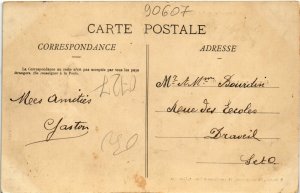 90607
CARTE POSTALE
CORRESPONDANCE
ADRESSE
La Correspondance au recto n'est pas acceptée par tous les pays
étrangers (Se renseigner à la Poste.)
Mes Amitiés
Gaston
Mr & Mme Bourdin
Rue des Ecoles
Draveil
S et O